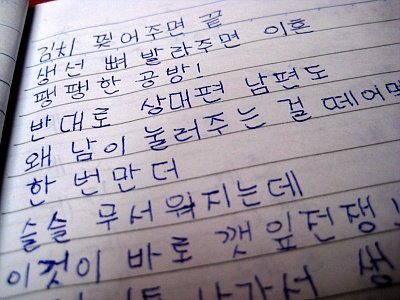 김치 찢어주면 끝
생선 뼈 발라주면 이혼
팽팽한 공방!
반대로 상대편 남편도
왜 남이 눌러주는 걸 떼어먹
한 번만 더
슬슬 무서워지는데
이것이 바로 깻잎전쟁!
나가서 생